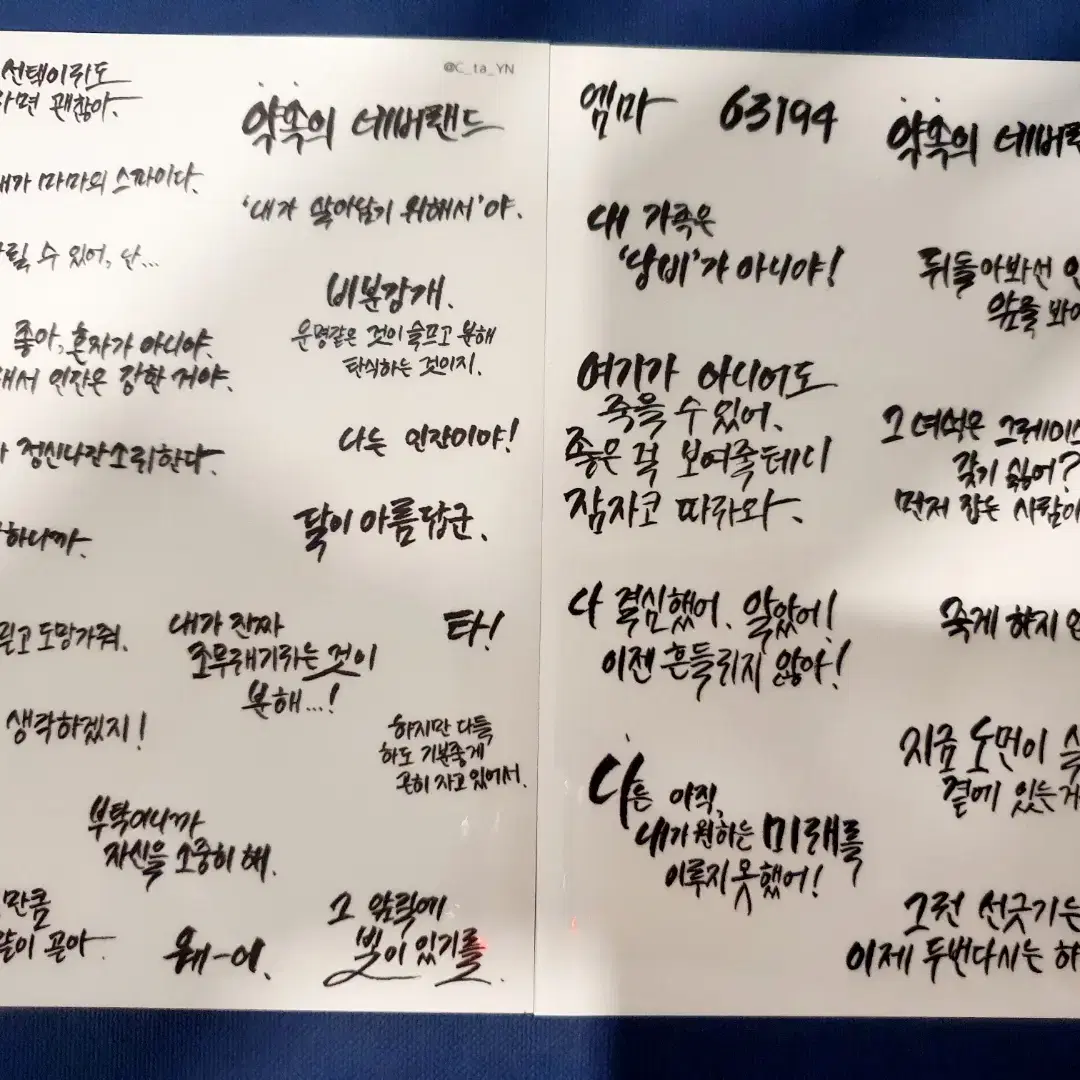 선택이라도
라면 괜찮아.
내가 마마의 스파이다.
릴 수 있어, 난...
좋아, 혼자가 아니야.
해서 인간은 강한 거야.
정신나간소리한다.
하니까.
믿고 도망가줘.
생각하겠지!
부탁이니까
자신을 소중히 해.
만큼
많이 곧아
@C_ta_YN
약속의 네버랜드
'내가 살아남기 위해서'야.
비분강개.
운명같은 것이 슬프고 분해
탄식하는 것이지.
나는 인간이야!
달이 아름답군.
내가 진짜
조무래기라는 것이
분해...!
타!
하지만 다들
하도 기분좋게
곤히 자고 있어서.
왜-에.
그 앞길에
빛이 있기를.
엠마 63194
내 가족은
'낭비'가 아니야!
여기가 아니어도
죽을 수 있어.
좋은 걸 보여줄테니
잠자코 따라와.
나 결심했어. 알았어!
이젠 흔들리지 않아!
나는 아직,
내가 원하는 미래를
이루지 못했어!
약속의 네버랜
뒤돌아봐선 안
앞을 봐
그 녀석은 그레이스
갖기 싫어?
먼저 잡는 사람이
죽게 하지 안
지금 노먼이
곁에 있는
그런 선긋기는
이제 두번다시는 하